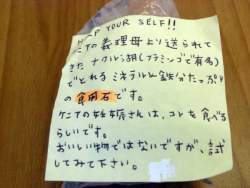 HELP YOUR SELF!!
ケニアの義理母より送られて
きた ナクル湖(フラミンゴで有名)
でとれる ミネラルと鉄分たっぷり
の食用石です。
ケニアの妊婦さんは、コレを食べる
らしいです。
おいしい物ではないですが、試
してみて下さい。